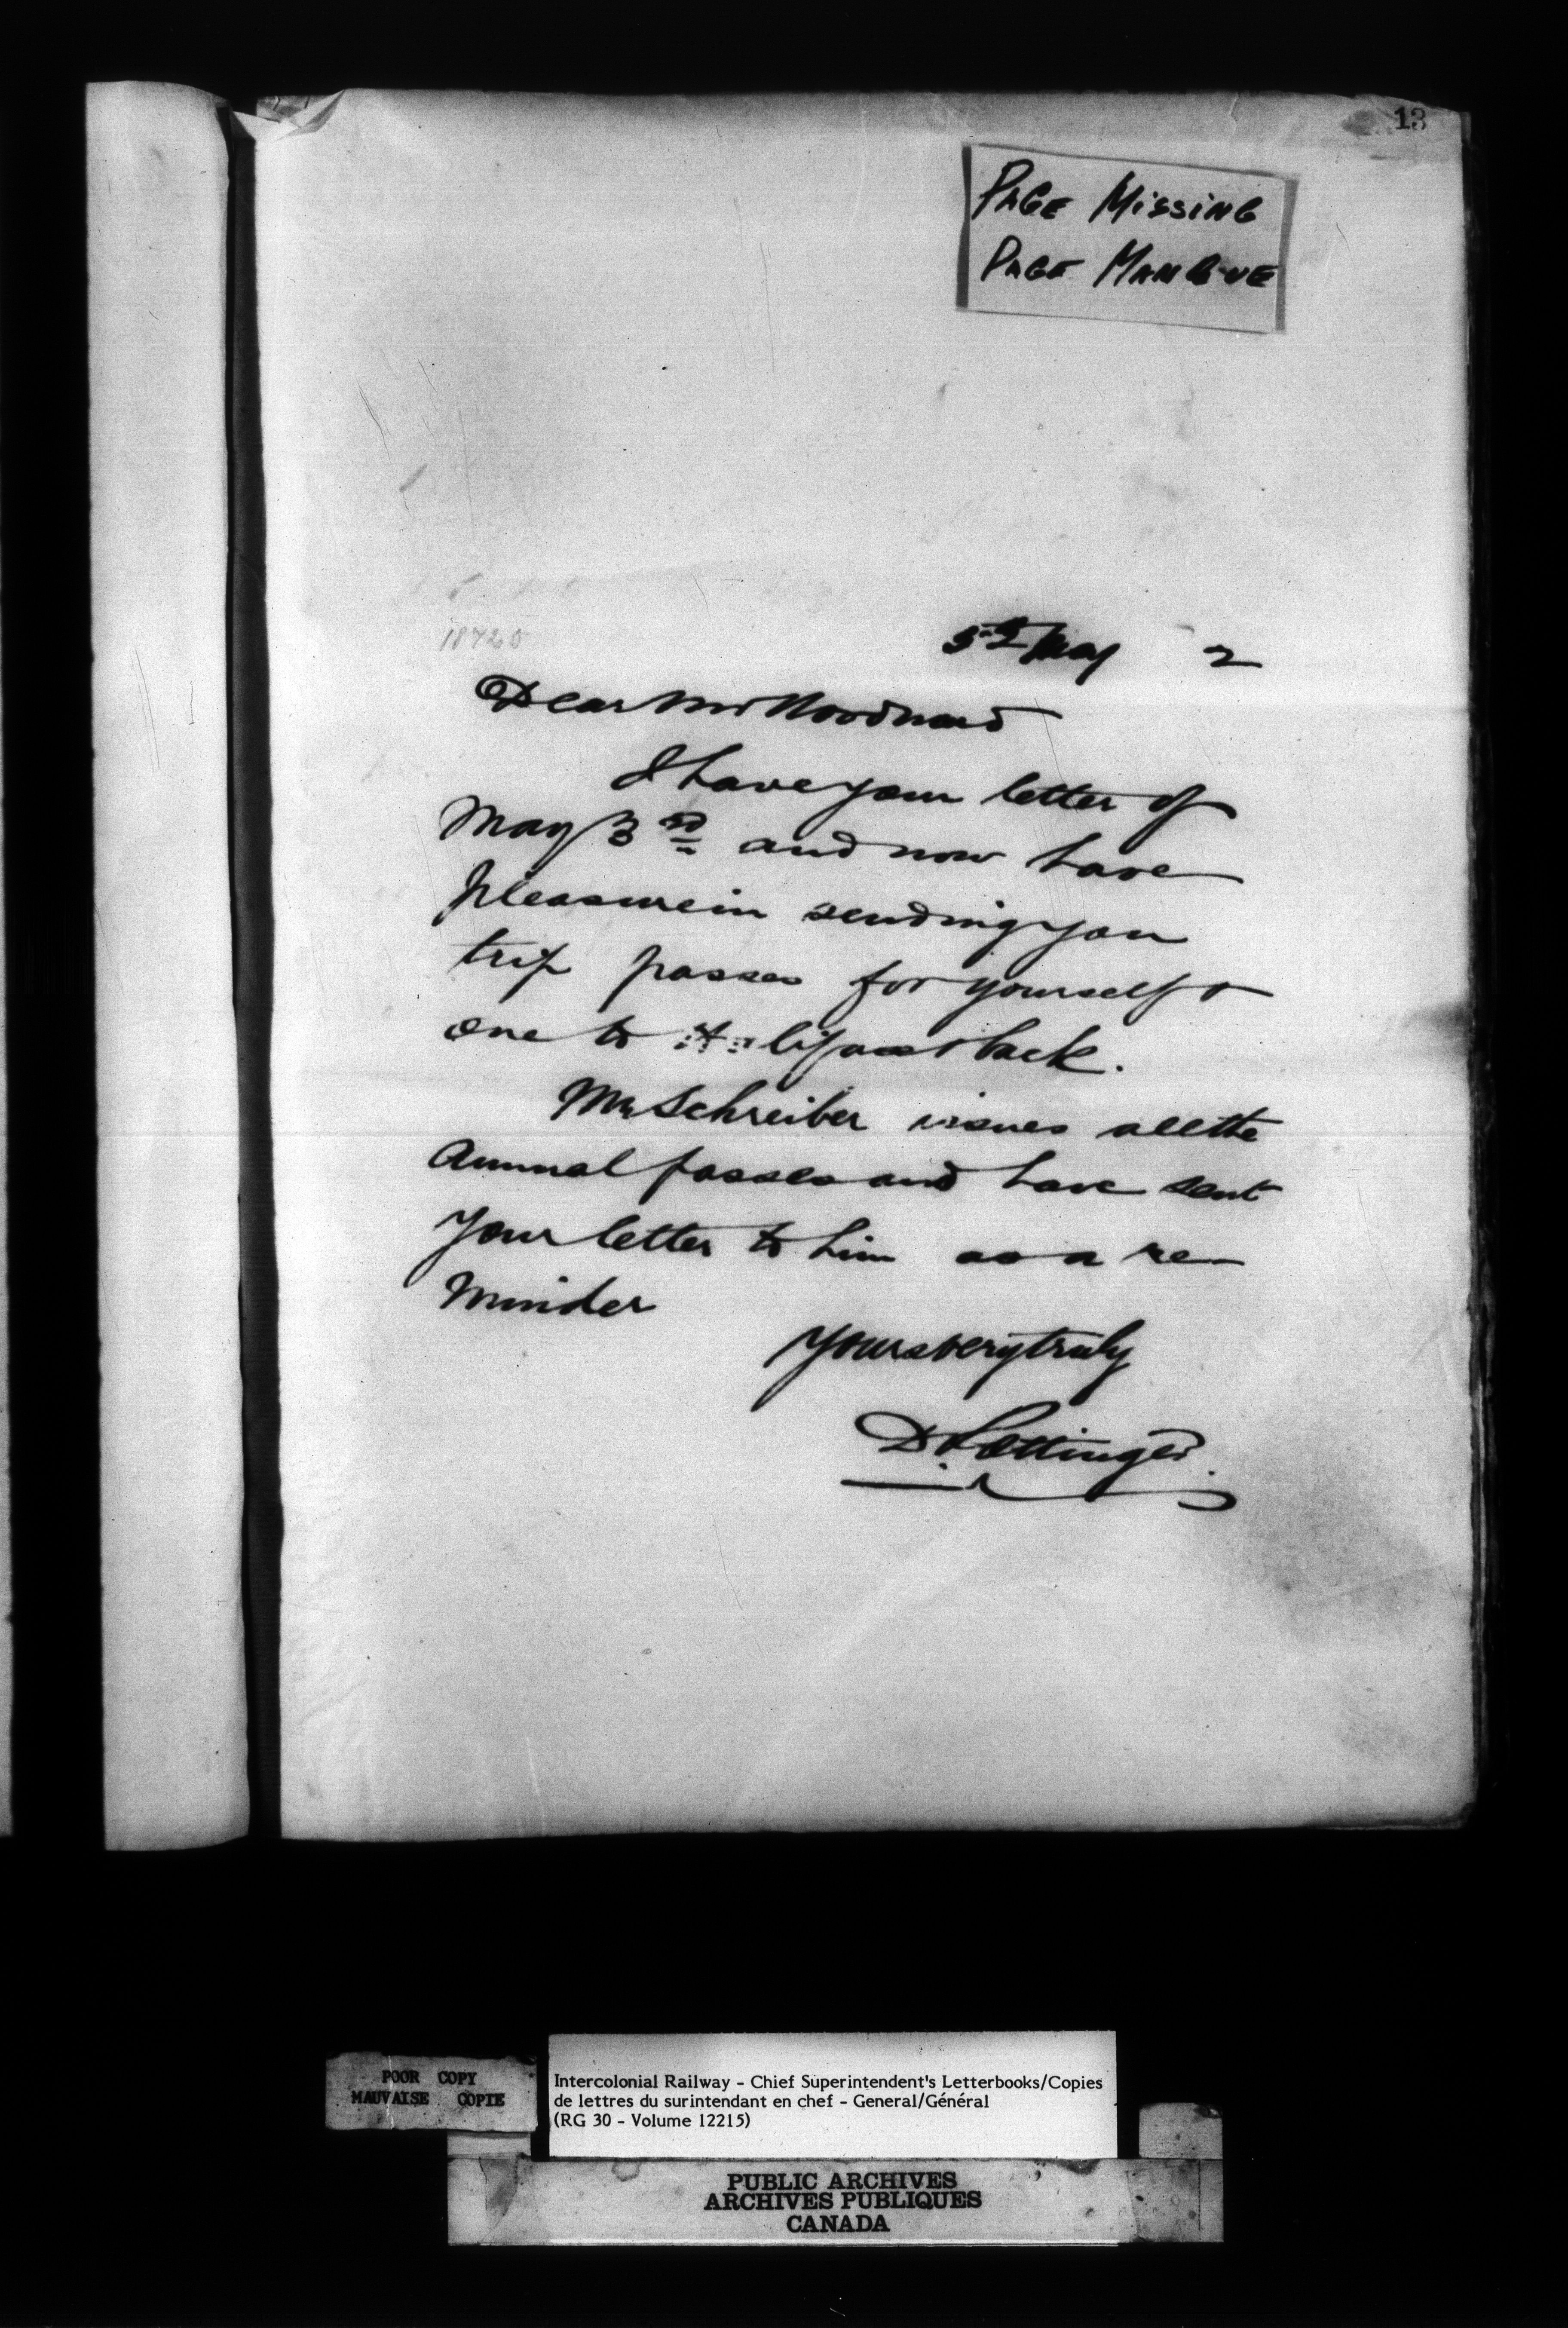 13
PAGE MISSING
PAGE MANQUE
18720
5th May 2
Dear Mr Woodward
I have your letter of
May 3rd and now have
pleasure in sending you
trip passes for yourself &
one to Halifax & back.
Mr Schreiber issues all the
Annual passes and have sent
your letter to him as a re-
minder
Yours very truly
D Pottinger.
POOR COPY
MAUVAISE COPIE
Intercolonial Railway - Chief Superintendent's Letterbooks/Copies
de lettres du surintendant en chef - General/Général
(RG 30 - Volume 12215)
PUBLIC ARCHIVES
ARCHIVES PUBLIQUES
CANADA